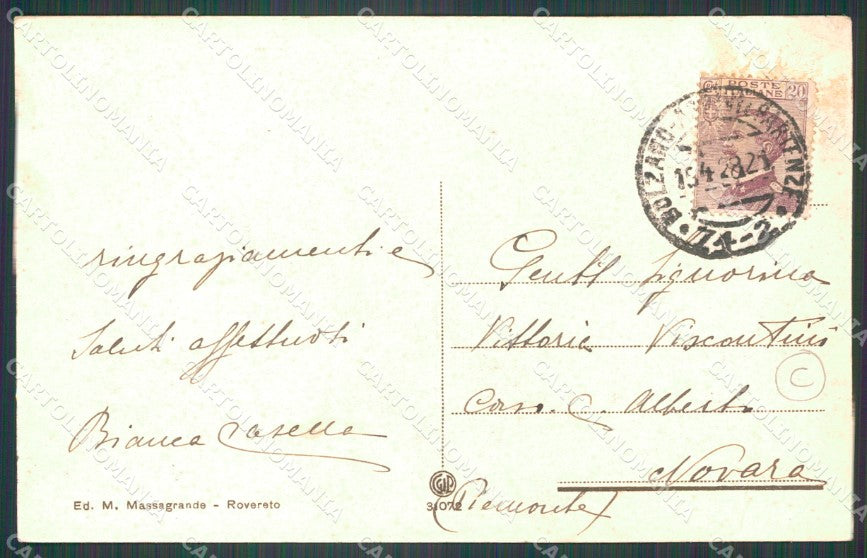 ringraziamenti e
saluti affettuosi
Bianca Casella
Ed. M. Massagrande - Rovereto
POSTE ITALIANE 20
BOLZANO
15.4.28.21
Gentil Signorina
Vittoria Viscontini
Corso C. Alberto
Novara
(Piemonte)
31072
C
CARTOLINOMANIA